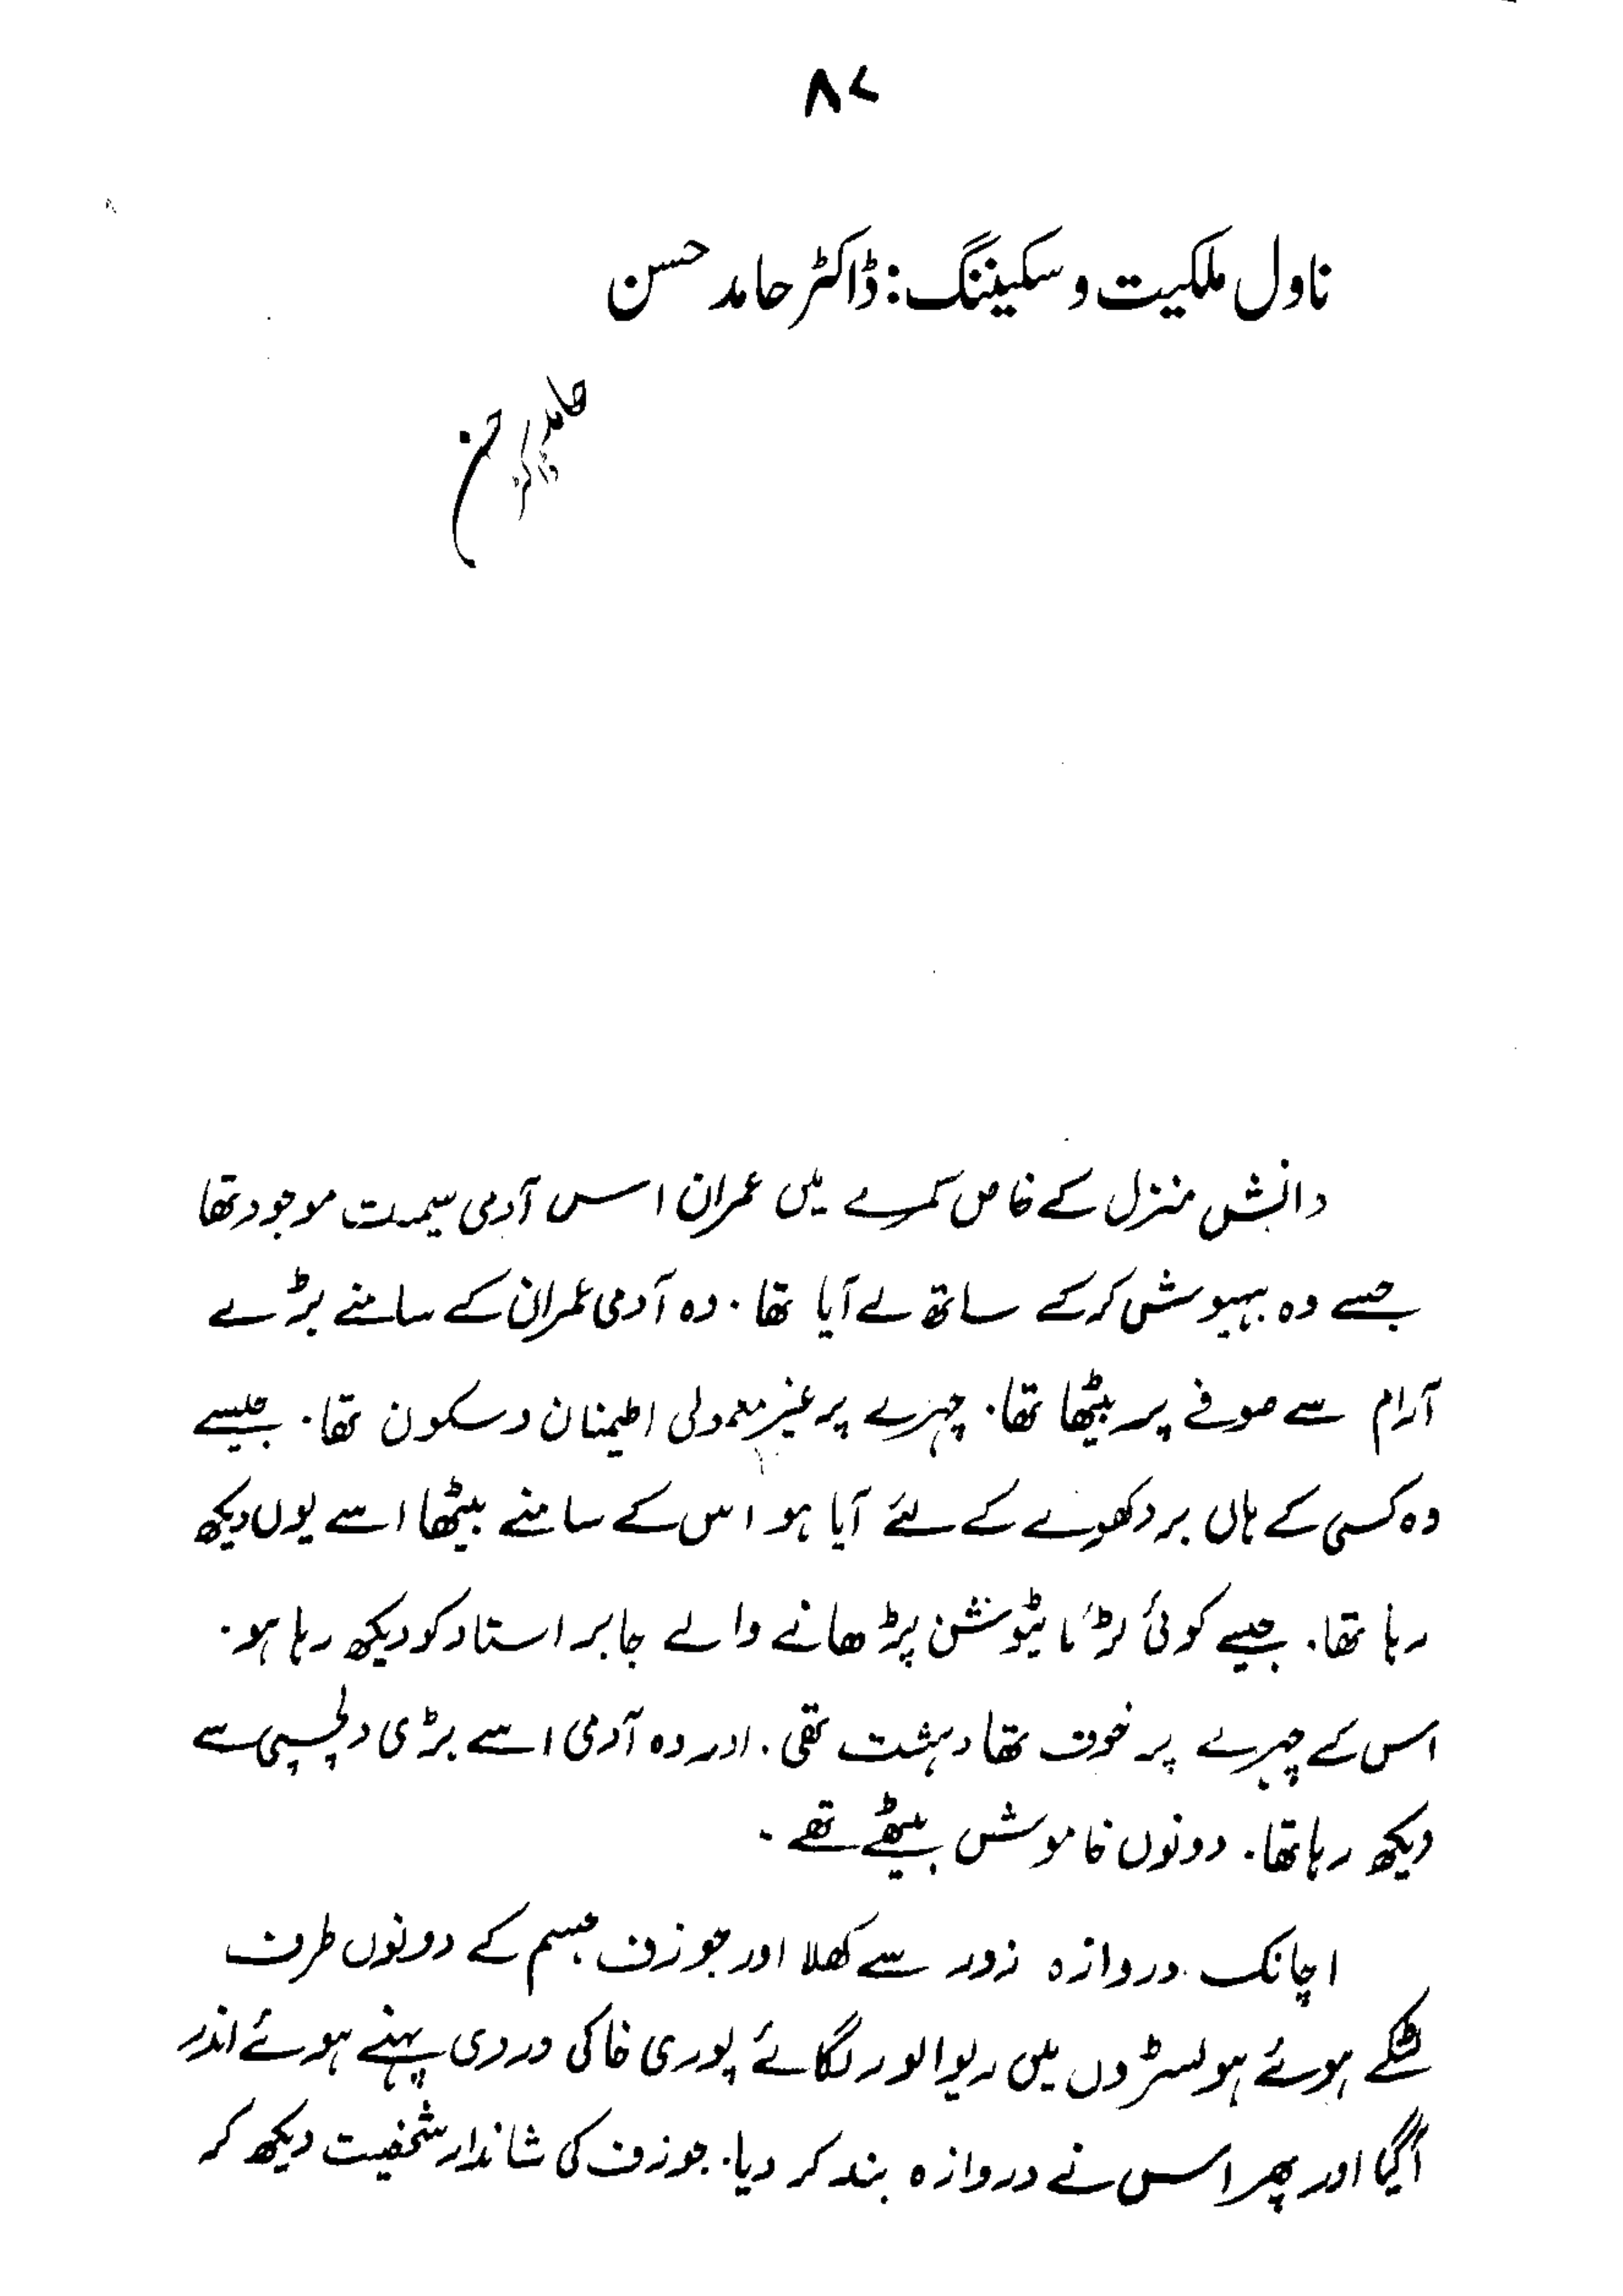 ۸۷
ناول ملکیت و سکیننگ: ڈاکٹر حامد حسن
حامد
ڈاکٹر
حسن
دانش منزل کے خاص کمرے میں عمران اس آدمی سمیت موجود تھا
جسے وہ بیہوش کرکے ساتھ لے آیا تھا۔ وہ آدمی عمران کے سامنے بڑے
آرام سے صوفے پر بیٹھا تھا۔ چہرے پر غیر معمولی اطمینان و سکون تھا۔ جیسے
وہ کسی کے ہاں بردکھوے کے لئے آیا ہو اس کے سامنے بیٹھا اسے یوں دیکھ
رہا تھا۔ جیسے کوئی لڑکا ٹیوشن پڑھانے والے جابر استاد کو دیکھ رہا ہو۔
اس کے چہرے پر خوف تھا دہشت تھی۔ اور وہ آدمی اسے بڑی دلچسپی سے
دیکھ رہا تھا۔ دونوں خاموش بیٹھے تھے۔
اچانک دروازہ زور سے کھلا اور جوزف جسم کے دونوں طرف
لٹکے ہوئے ہولسٹروں میں ریوالور لگائے پوری خاکی وردی پہنے ہوئے اندر
آگیا اور پھر اس نے دروازہ بند کر دیا۔ جوزف کی شاندار شخصیت دیکھ کر